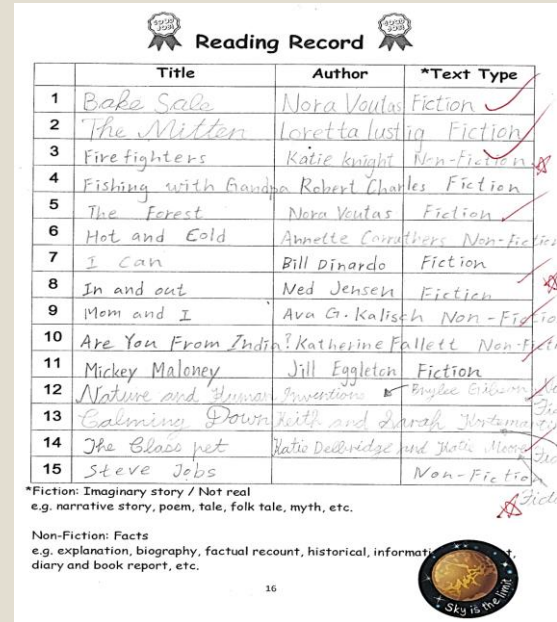 GOOD JOB!
GOOD JOB!
Reading Record
Title Author *Text Type
1 Bake Sale Nora Voutas Fiction
2 The Mitten Loretta lustig Fiction
3 Fire fighters Katie knight Non-Fiction
4 Fishing with Grandpa Robert Charles Fiction
5 The Forest Nora Voutas Fiction
6 Hot and Cold Annette Carruthers Non-Fiction
7 I can Bill Dinardo Fiction
8 In and out Ned Jensen Fiction
9 Mom and I Ava G. Kalisch Non-Fictio
10 Are You From India? Katherine Fallett Non-Ficti
11 Mickey Maloney Jill Eggleton Fiction
12 Nature and Human Inventions Brylee Gibson
13 Calming Down Keith and Sarah
14 The Class pet Katie Delbridge and Katie Moore
15 Steve Jobs Non-Fictio
*Fiction: Imaginary story / Not real
e.g. narrative story, poem, tale, folk tale, myth, etc.
Non-Fiction: Facts
e.g. explanation, biography, factual recount, historical,
diary and book report, etc.
16
Sky is the limit